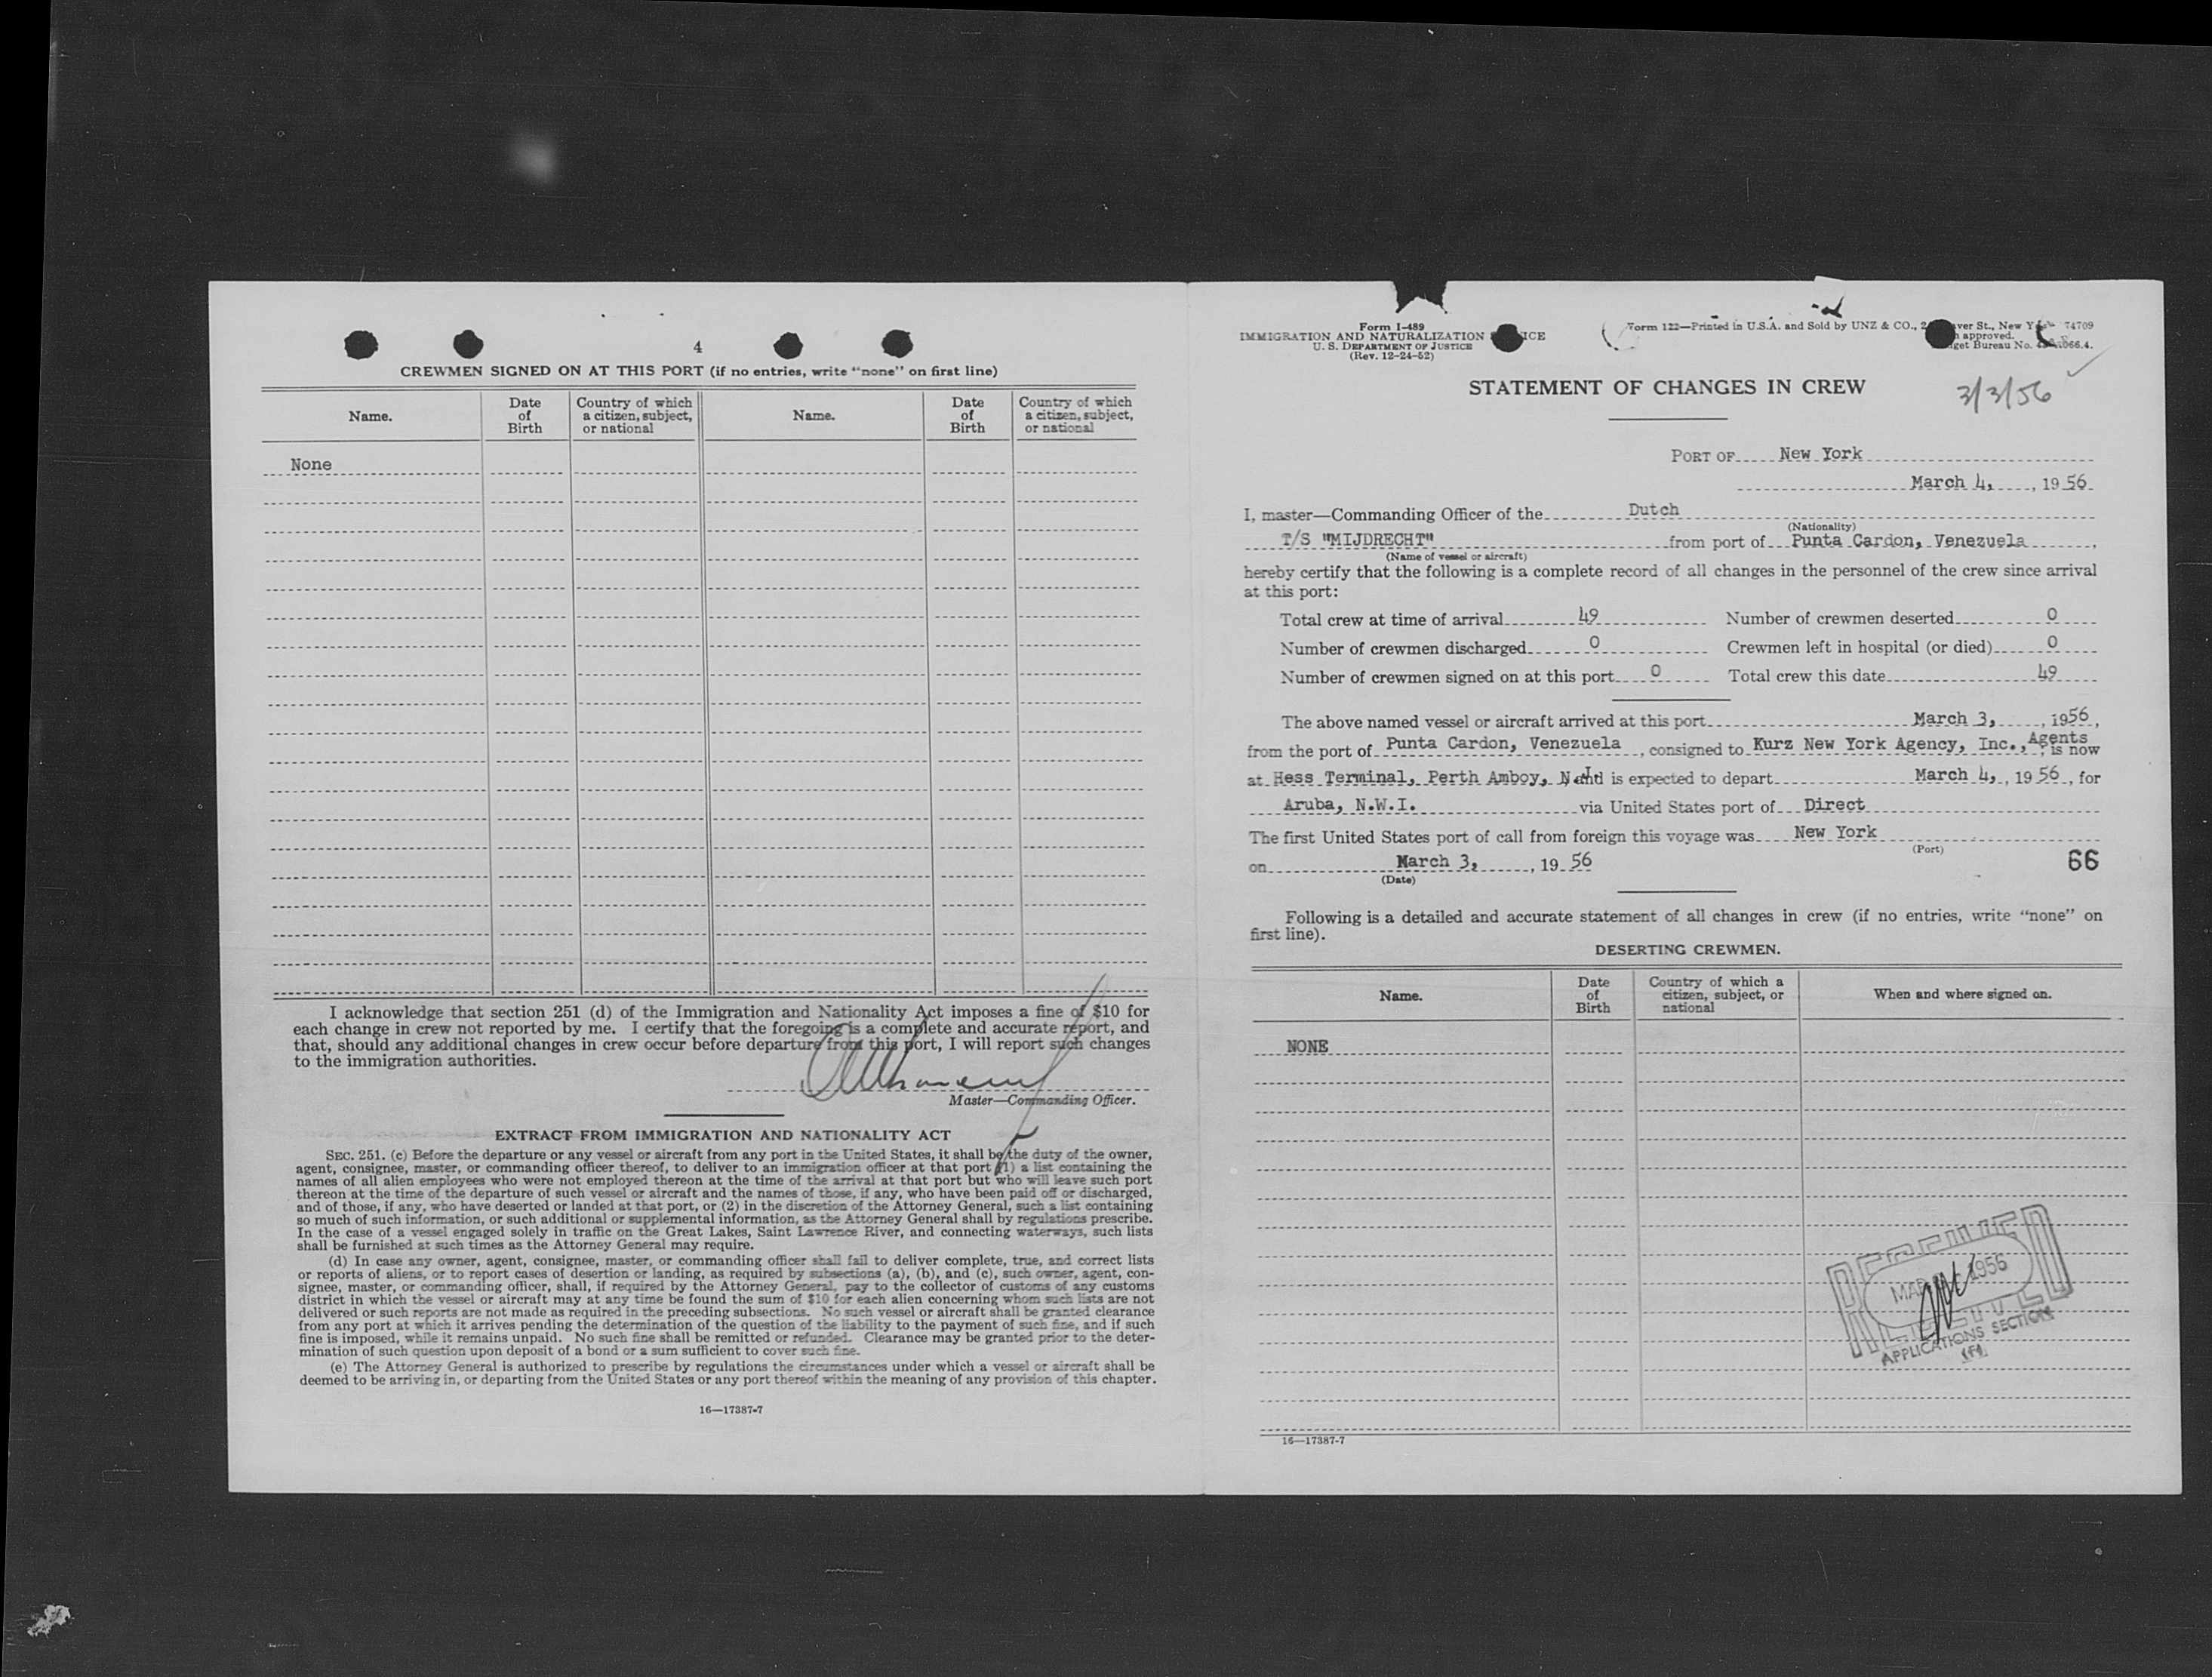 4
CREWMEN SIGNED ON AT THIS PORT (if no entries, write "none" on first line)
Name.
Date of Birth
Country of which a citizen, subject, or national
Name.
Date of Birth
Country of which a citizen, subject, or national
None
I acknowledge that section 251 (d) of the Immigration and Nationality Act imposes a fine of $10 for
each change in crew not reported by me. I certify that the foregoing is a complete and accurate report, and
that, should any additional changes in crew occur before departure from this port, I will report such changes
to the immigration authorities.
Master—Commanding Officer.
EXTRACT FROM IMMIGRATION AND NATIONALITY ACT
SEC. 251. (c) Before the departure or any vessel or aircraft from any port in the United States, it shall be the duty of the owner,
agent, consignee, master, or commanding officer thereof, to deliver to an immigration officer at that port (1) a list containing the
names of all alien employees who were not employed thereon at the time of the arrival at that port but who will leave such port
thereon at the time of the departure of such vessel or aircraft and the names of those, if any, who have been paid off or discharged,
and of those, if any, who have deserted or landed at that port, or (2) in the discretion of the Attorney General, such a list containing
so much of such information, or such additional or supplemental information, as the Attorney General shall by regulations prescribe.
In the case of a vessel engaged solely in traffic on the Great Lakes, Saint Lawrence River, and connecting waterways, such lists
shall be furnished at such times as the Attorney General may require.
(d) In case any owner, agent, consignee, master, or commanding officer shall fail to deliver complete, true, and correct lists
or reports of aliens, or to report cases of desertion or landing, as required by subsections (a), (b), and (c), such owner, agent, con-
signee, master, or commanding officer, shall, if required by the Attorney General, pay to the collector of customs of any customs
district in which the vessel or aircraft may at any time be found the sum of $10 for each alien concerning whom such lists are not
delivered or such reports are not made as required in the preceding subsections. No such vessel or aircraft shall be granted clearance
from any port at which it arrives pending the determination of the question of the liability to the payment of such fine, and if such
fine is imposed, while it remains unpaid. No such fine shall be remitted or refunded. Clearance may be granted prior to the deter-
mination of such question upon deposit of a bond or a sum sufficient to cover such fine.
(e) The Attorney General is authorized to prescribe by regulations the circumstances under which a vessel or aircraft shall be
deemed to be arriving in, or departing from the United States or any port thereof within the meaning of any provision of this chapter.
16—17387-7
Form I-489
IMMIGRATION AND NATURALIZATION ICE
U. S. DEPARTMENT OF JUSTICE
(Rev. 12-24-52)
Form 122—Printed in U.S.A. and Sold by UNZ & CO., St., New 74709
approved.
Bureau No.
STATEMENT OF CHANGES IN CREW
3/3/56
PORT OF New York
March 4, , 19 56
I, master—Commanding Officer of the Dutch
(Nationality)
T/S "MIJDRECHT" from port of Punta Cardon, Venezuela,
(Name of vessel or aircraft)
hereby certify that the following is a complete record of all changes in the personnel of the crew since arrival
at this port:
Total crew at time of arrival 49 Number of crewmen deserted 0
Number of crewmen discharged 0 Crewmen left in hospital (or died) 0
Number of crewmen signed on at this port 0 Total crew this date 49
The above named vessel or aircraft arrived at this port March 3, , 1956,
from the port of Punta Cardon, Venezuela, consigned to Kurz New York Agency, Inc., Agents, is now
at Hess Terminal, Perth Amboy, NJ and is expected to depart March 4, , 19 56, for
Aruba, N.W.I. via United States port of Direct
The first United States port of call from foreign this voyage was New York
(Port)
on March 3, , 19 56
(Date)
66
Following is a detailed and accurate statement of all changes in crew (if no entries, write "none" on
first line).
DESERTING CREWMEN.
Name.
Date of Birth
Country of which a citizen, subject, or national
When and where signed on.
NONE
RECEIVED
MAR 1956
APPLICATIONS SECTION
16—17387-7